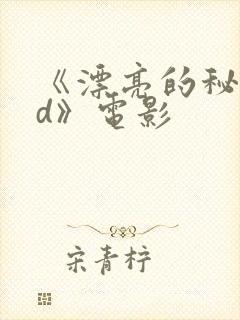 《漂亮的秘
d》电影
宋青梓